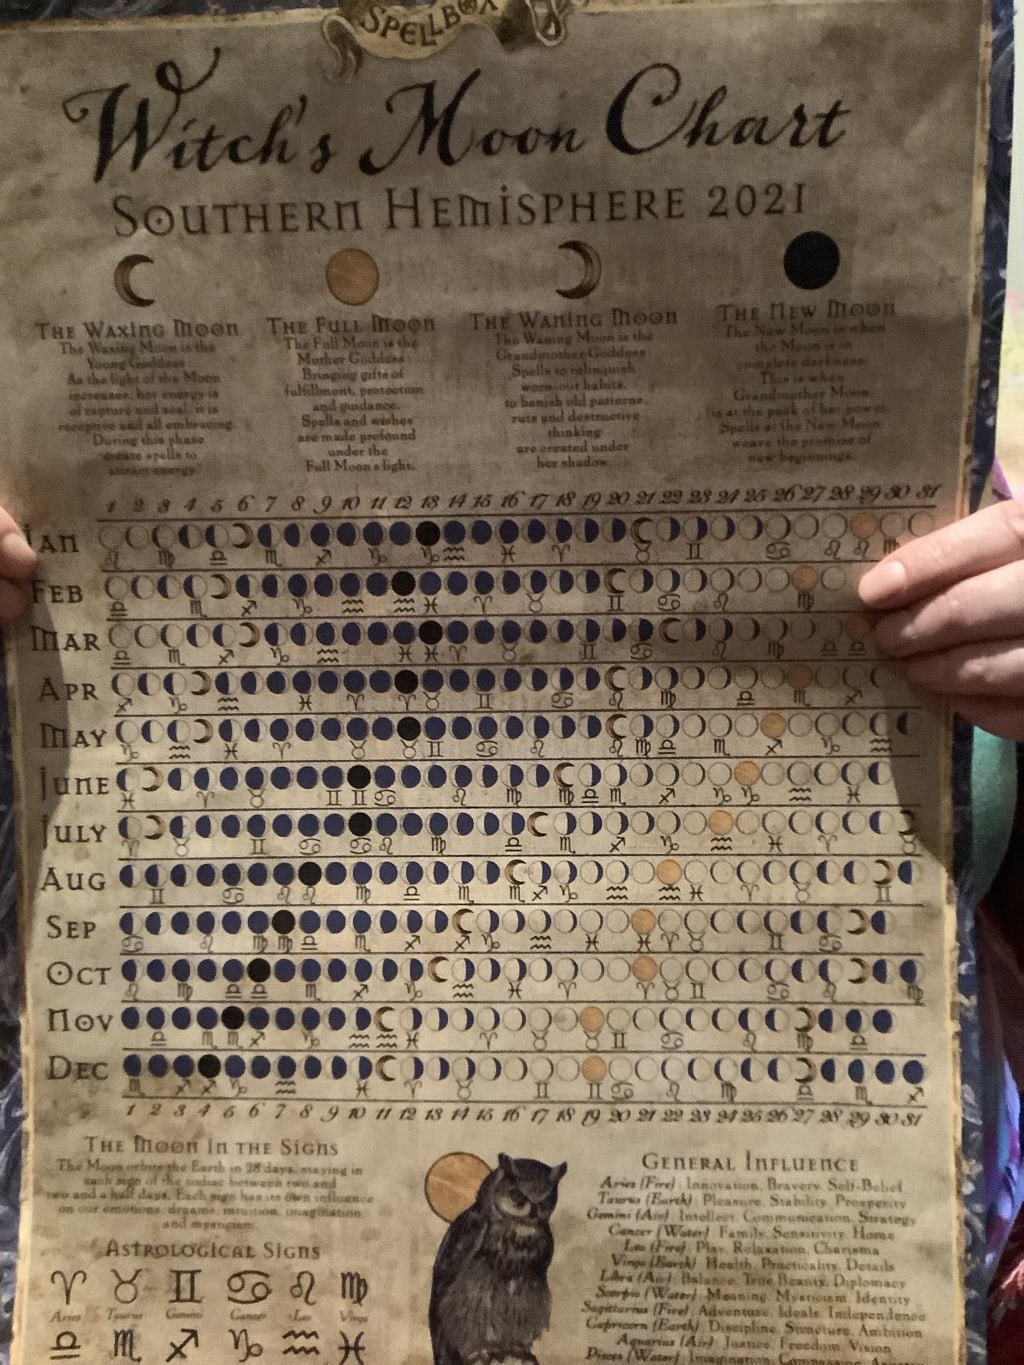 SPELLBOX
Witch's Moon Chart
Southern Hemisphere 2021
The Waxing Moon
The Waxing Moon is the
Young Goddess
As the light of the Moon
increases, her energy is
of rapture and zeal, it is
receptive and all embracing.
During this phase
create spells to
attract energy.
The Full Moon
The Full Moon is the
Mother Goddess
Bringing gifts of
fulfillment, protection
and guidance.
Spells and wishes
are made profound
under the
Full Moon's light.
The Waning Moon
The Waning Moon is the
Grandmother Goddess
Spells to relinquish
worn-out habits,
to banish old patterns,
ruts and destructive
thinking
are created under
her shadow.
The New Moon
The New Moon is when
the Moon is in
complete darkness.
This is when
Grandmother Moon
is at the peak of her power.
Spells at the New Moon
weave the promise of
new beginnings.
1 2 3 4 5 6 7 8 9 10 11 12 13 14 15 16 17 18 19 20 21 22 23 24 25 26 27 28 29 30 31
Jan
Feb
Mar
Apr
May
June
July
Aug
Sep
Oct
Nov
Dec
1 2 3 4 5 6 7 8 9 10 11 12 13 14 15 16 17 18 19 20 21 22 23 24 25 26 27 28 29 30 31
The Moon in the Signs
The Moon orbits the Earth in 28 days, staying in
each sign of the zodiac between two and
two and a half days. Each sign has its own influence
on our emotions, dreams, intuition, imagination
and mysticism.
Astrological Signs
Aries Taurus Gemini Cancer Leo Virgo
General Influence
Aries (Fire): Innovation, Bravery, Self-Belief
Taurus (Earth): Pleasure, Stability, Prosperity
Gemini (Air): Intellect, Communication, Strategy
Cancer (Water): Family, Sensitivity, Home
Leo (Fire): Play, Relaxation, Charisma
Virgo (Earth): Health, Practicality, Details
Libra (Air): Balance, True Beauty, Diplomacy
Scorpio (Water): Meaning, Mysticism, Identity
Sagittarius (Fire): Adventure, Ideals, Independence
Capricorn (Earth): Discipline, Structure, Ambition
Aquarius (Air): Justice, Freedom, Vision
Pisces (Water): Imagination, Compassion,